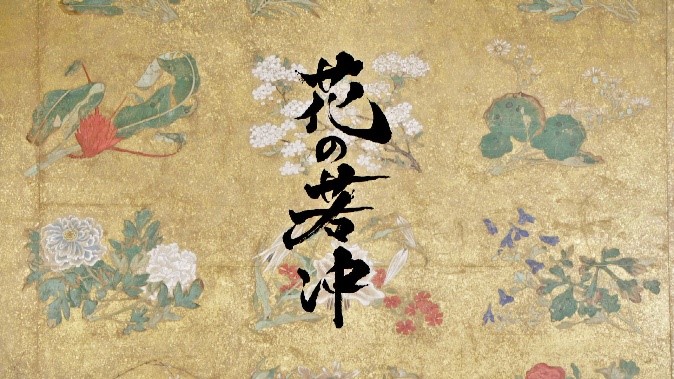 花の若冲